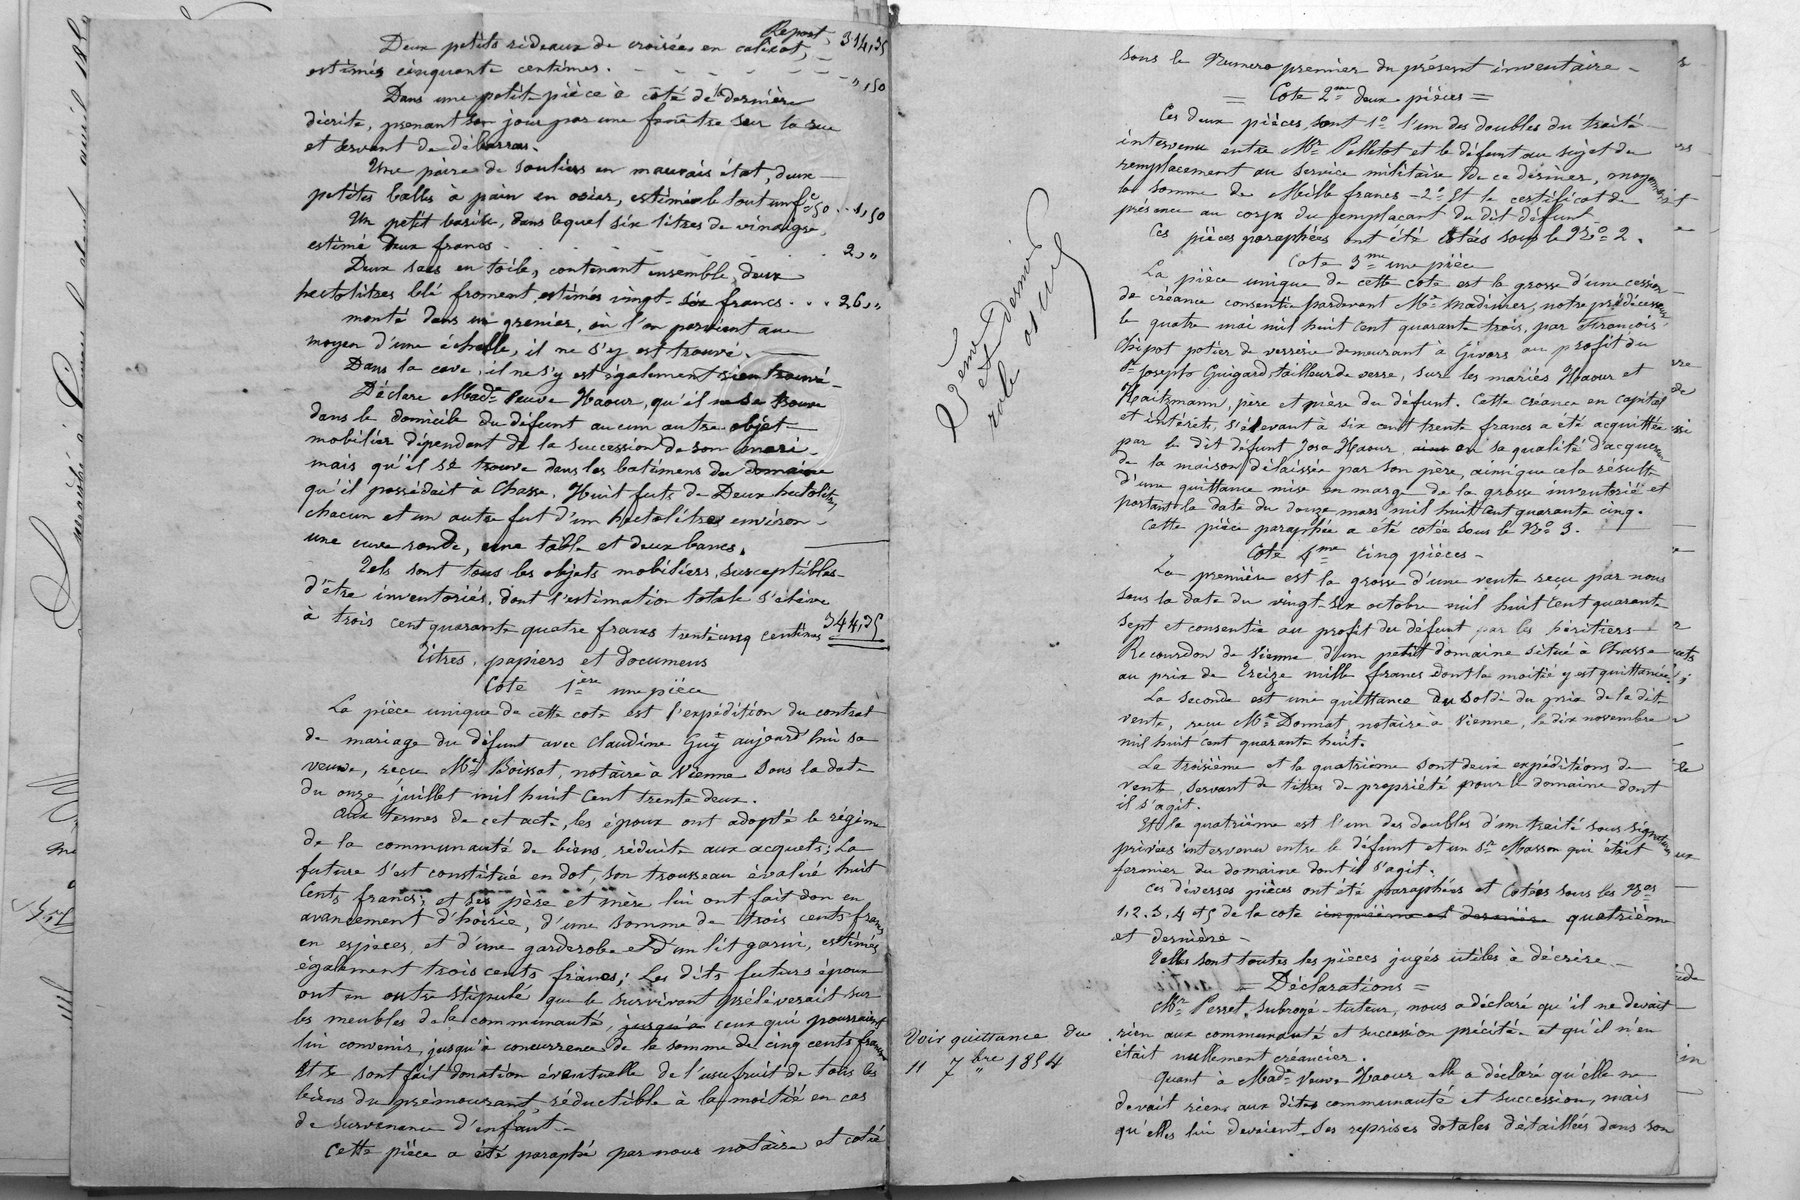 Report 314,35
Deux petits rideaux de croisées en calicot,
estimés cinquante centimes. - - - - - - - ",50
Dans une petite pièce à côté de la dernière
décrite, prenant son jour par une fenêtre sur la rue
et servant de débarras.
Une paire de souliers en mauvais état, deux
petites balles à pain en osier, estimés le tout un fc 50 . . 1,50
Un petit baril, dans lequel six litres de vinaigre,
estimé Deux francs . . . . . . . 2,"
Deux sacs en toile, contenant ensemble deux
hectolitres blé froment, estimés vingt-six francs . . . 26,"
monté dans un grenier, où l'on parvient au
moyen d'une échelle, il ne s'y est trouvé.
Dans la cave, il ne s'y est également rien trouvé -
Déclare Made Veuve Haour, qu'il ne se trouve
dans le domicile du défunt aucun autre objet
mobilier dépendant de la succession de son mari -
mais qu'il se trouve dans les batimens du domaine
qu'il possédait à Chasse. Huit futs de Deux hectolitres
chacun et un autre fut d'un hectolitre environ -
une cuve ronde, une table et deux bancs.
Tels sont tous les objets mobiliers, susceptibles
d'être inventoriés, dont l'estimation totale s'élève
à trois cent quarante quatre francs trente cinq centimes 344,35
Titres, papiers et documens
Cote 1ère une pièce
La pièce unique de cette cote est l'expédition du contrat
de mariage du défunt avec Claudine Guy aujourd'hui sa
veuve, reçu Me Boissat, notaire à Vienne sous la date
du onze juillet mil huit cent trente deux.
Aux termes de cet acte, les époux ont adopté le régime
de la communauté de biens, réduite aux acquets; La
future s'est constitué en dot, son trousseau évalué huit
Cents francs; et ses père et mère lui ont fait don en
avancement d'hoirie, d'une somme de trois cents francs
en espèces, et d'une garderobe et d'un lit garni, estimés
également trois cents francs; Les dits futurs époux
ont en outre stipulé que le survivant prélèverait sur
les meubles de la communauté, jusqu'à ceux qui pourraient
lui convenir, jusqu'à concurrence de la somme de cinq cents francs
Et se sont fait donation éventuelle de l'usufruit de tous les
biens du prémourant, réductible à la moitié en cas
de survenance d'enfant. -
Cette pièce a été paraphé par nous notaire et cotée
sous le Numero premier du présent inventaire -
= Cote 2me deux pièces =
Ces deux pièces sont 1o l'un des doubles du traité
intervenu entre Mr Pelletot et le défunt au sujet du
remplacement au service militaire de ce dernier, moyennant
la somme de Mille francs - 2o Et le certificat de
présence au corps du remplacant du dit défunt
Ces pièces paraphées ont été cotées sous le No 2.
Cote 3me une pièce
La pièce unique de cette cote est la grosse d'une cession
de créance consentie pardevant Me Madinier, notre prédécesseur
le quatre mai mil huit cent quarante trois, par François
Chipot potier de verrerie demeurant à Givors au profit du
Sr Joseph Guigard, tailleur de verre, sur les mariés Haour et
Haitzmann, père et mère du défunt. Cette créance en capital
et intérêts, s'élevant à six cent trente francs a été acquittée
par le dit défunt Jose Haour, en sa qualité d'acquereur
de la maison délaissée par son père, ainsi que cela résulte
d'une quittance mise en marge de la grosse inventorié et
portant la date du douze mars mil huit cent quarante cinq.
Cette pièce paraphée a été cotée sous le No 3.
Cote 4me Cinq pièces -
La première est la grosse d'une vente reçu par nous
sous la date du vingt-six octobre mil huit cent quarante
sept et consentie au profit du défunt par les héritiers
Recourdon de Vienne d'un petit domaine situé à Chasse
au prix de Treize mille francs dont la moitié y est quittancée.
La seconde est une quittance du solde du prix de la dite
vente, reçu Me Donnat, notaire à Vienne, le dix novembre
mil huit cent quarante huit.
La troisième et la quatrième sont deux expéditions de
vente, servant de titres de propriété pour le domaine dont
il s'agit.
Et la quatrième est l'un des doubles d'un traité sous signatures
privées intervenu entre le défunt et un Sr Masson qui était
fermier du domaine dont il s'agit.
Ces diverses pièces ont été paraphées et cotées sous les Nos
1, 2, 3, 4 et 5 de la cote cinquième et dernière quatrième
et dernière -
Telles sont toutes les pièces jugés utiles à décrire -
= Déclarations =
Mr Perret, subrogé-tuteur, nous a déclaré qu'il ne devait
rien aux communauté et succession précitée et qu'il n'en
était nullement créancier.
Quant à Made Veuve Haour elle a déclaré qu'elle ne
devait rien aux dites communauté et succession, mais
qu'elles lui devaient. Ses reprises dotales détaillées dans son
et dernier
Voir quittance du
11 7bre 1854